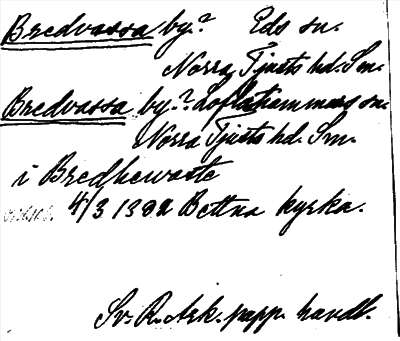 Bredvassa by? Eds sn.
Norra Tjusts hd. Sm.
Bredvassa by? Loftahammars sn.
Norra Tjusts hd. Sm.
i Bredhewaste
4/3 1382 Bettna kyrka.
Sv. R. Ark. papp. handl.